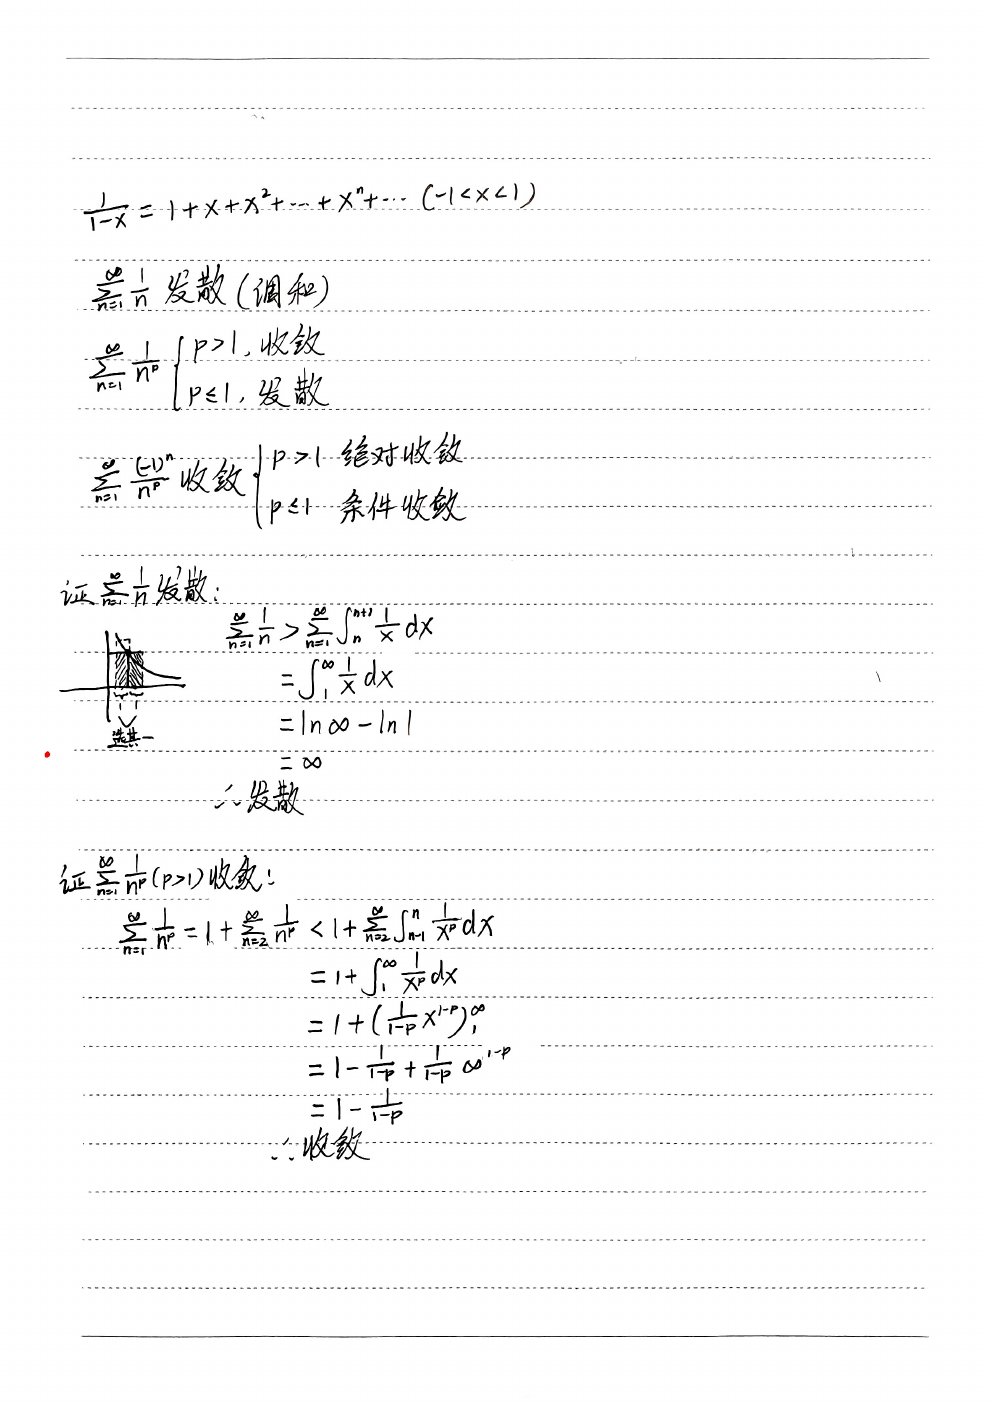 1/(1-x) = 1+x+x²+…+xⁿ+… (-1<x<1)
∑_{n=1}^{∞} 1/n 发散(调和)
∑_{n=1}^{∞} 1/n^p { p>1, 收敛
p≤1, 发散
∑_{n=1}^{∞} (-1)^n/n^p 收敛 { p>1 绝对收敛
p≤1 条件收敛
证 ∑_{n=1}^{∞} 1/n 发散:
∑_{n=1}^{∞} 1/n > ∑_{n=1}^{∞} ∫_n^{n+1} 1/x dx
= ∫_1^∞ 1/x dx
= ln∞ - ln1
选其一
= ∞
∴发散
证 ∑_{n=1}^{∞} 1/n^p (p>1) 收敛:
∑_{n=1}^{∞} 1/n^p = 1+∑_{n=2}^{∞} 1/n^p < 1+∑_{n=2}^{∞} ∫_{n-1}^{n} 1/x^p dx
= 1+∫_1^∞ 1/x^p dx
= 1+(1/(1-p) x^{1-p})_1^∞
= 1 - 1/(1-p) + 1/(1-p) ∞^{1-p}
= 1 - 1/(1-p)
∴收敛